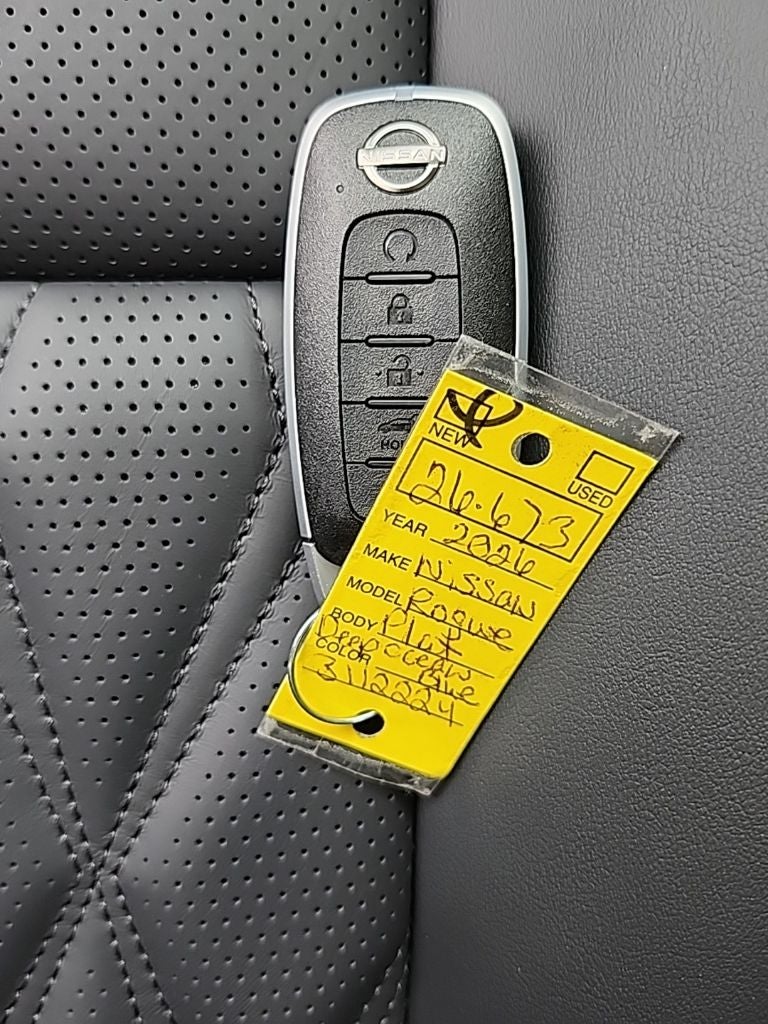 NISSAN
HOL
NEW
USED
26-673
YEAR 2026
MAKE Nissan
MODEL Rogue
BODY Plat
COLOR Deep ocean Blue
3112224